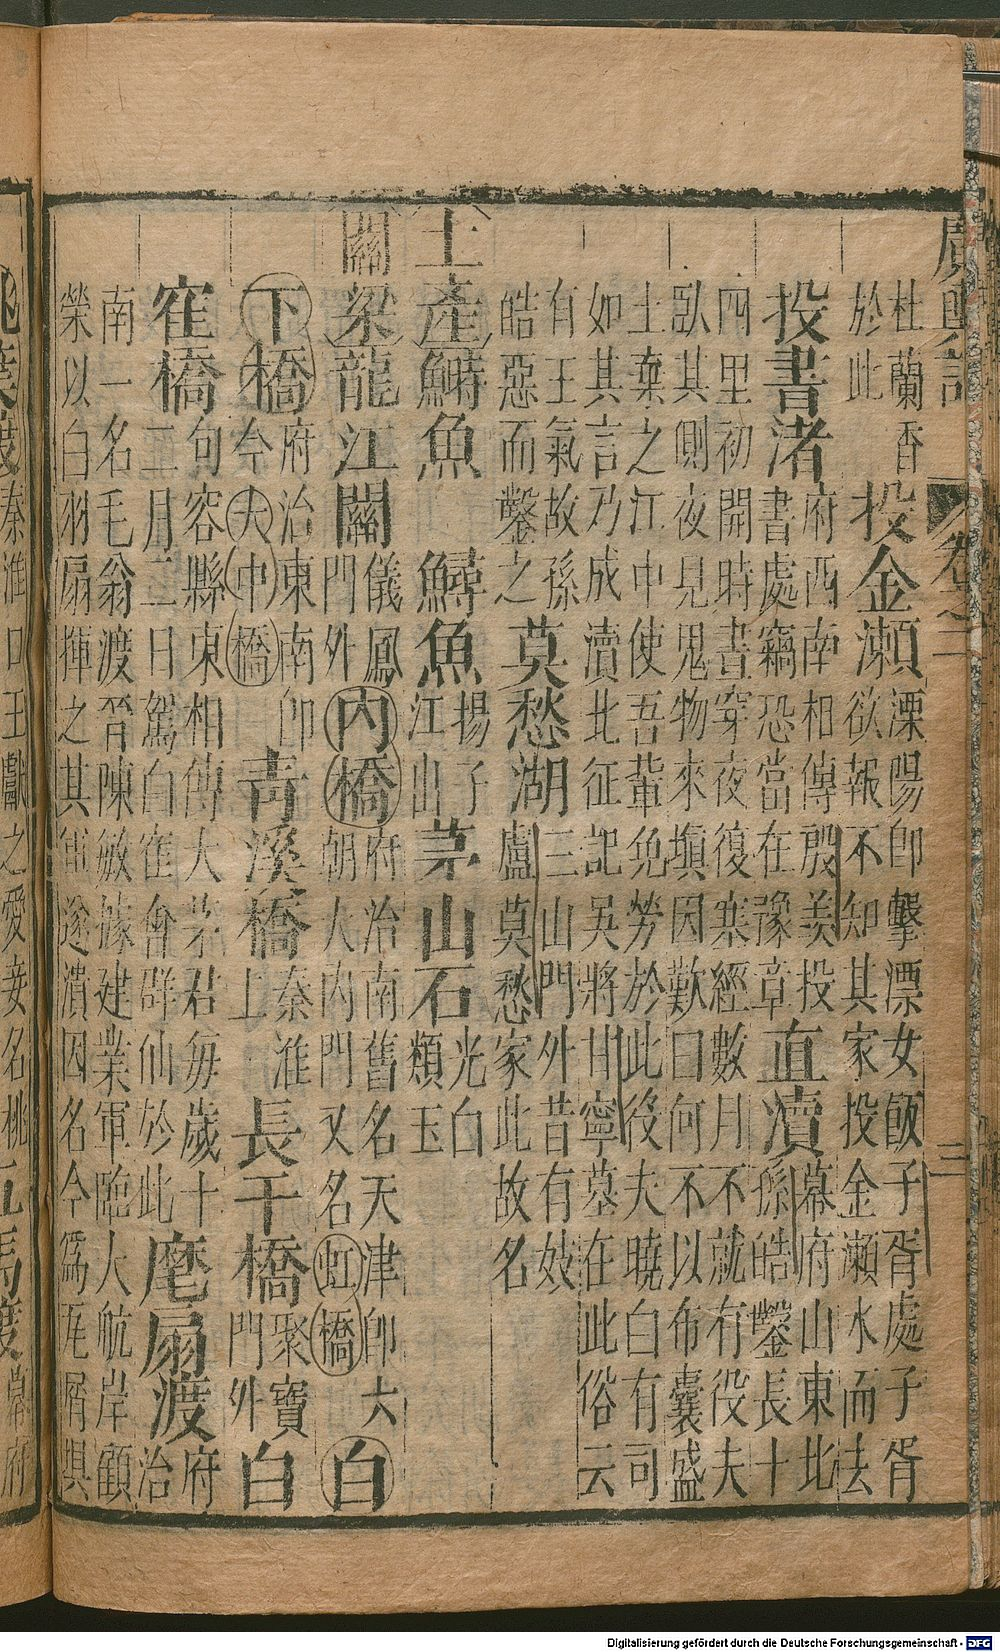 廣輿記 卷之二 二
杜蘭香
於此
投金瀨
溧陽即擊漂女飯子胥處子胥
欲報不知其家投金瀨水而去
投書渚
府西南相傳殷羨投
書處竊恐當在豫章
直瀆
幕府山東北
孫皓鑿長十
四里初開時晝穿夜復塞經數月不就有役夫
臥其側夜見鬼物來填因歎曰何不以布囊盛
土棄之江中使吾輩免勞於此役夫曉白有司
如其言乃成瀆北征記吳將甘寧墓在此俗云
有王氣故孫
皓惡而鑿之
莫愁湖
三山門外昔有妓
盧莫愁家此故名
土產鰣魚 鱘魚
揚子
江出
茅山石
光白
類玉
關梁龍江關
儀鳳
門外
內橋
府治南舊名天津即大
朝大內門又名虹橋
白
下橋
府治東南即
今大中橋
青溪橋
秦淮
上
長干橋
聚寶
門外
白
寉橋
句容縣東相傳大茅君每歲十
二月二日駕白寉會群仙於此
麾扇渡
府
治
南一名毛翁渡晉陳敏據建業軍臨大航岸顧
榮以白羽扇揮之其軍遂潰因名今為瓦屑
桃葉渡
秦淮口王獻之愛妾名桃
五馬渡
Digitalisierung gefördert durch die Deutsche Forschungsgemeinschaft - DFG